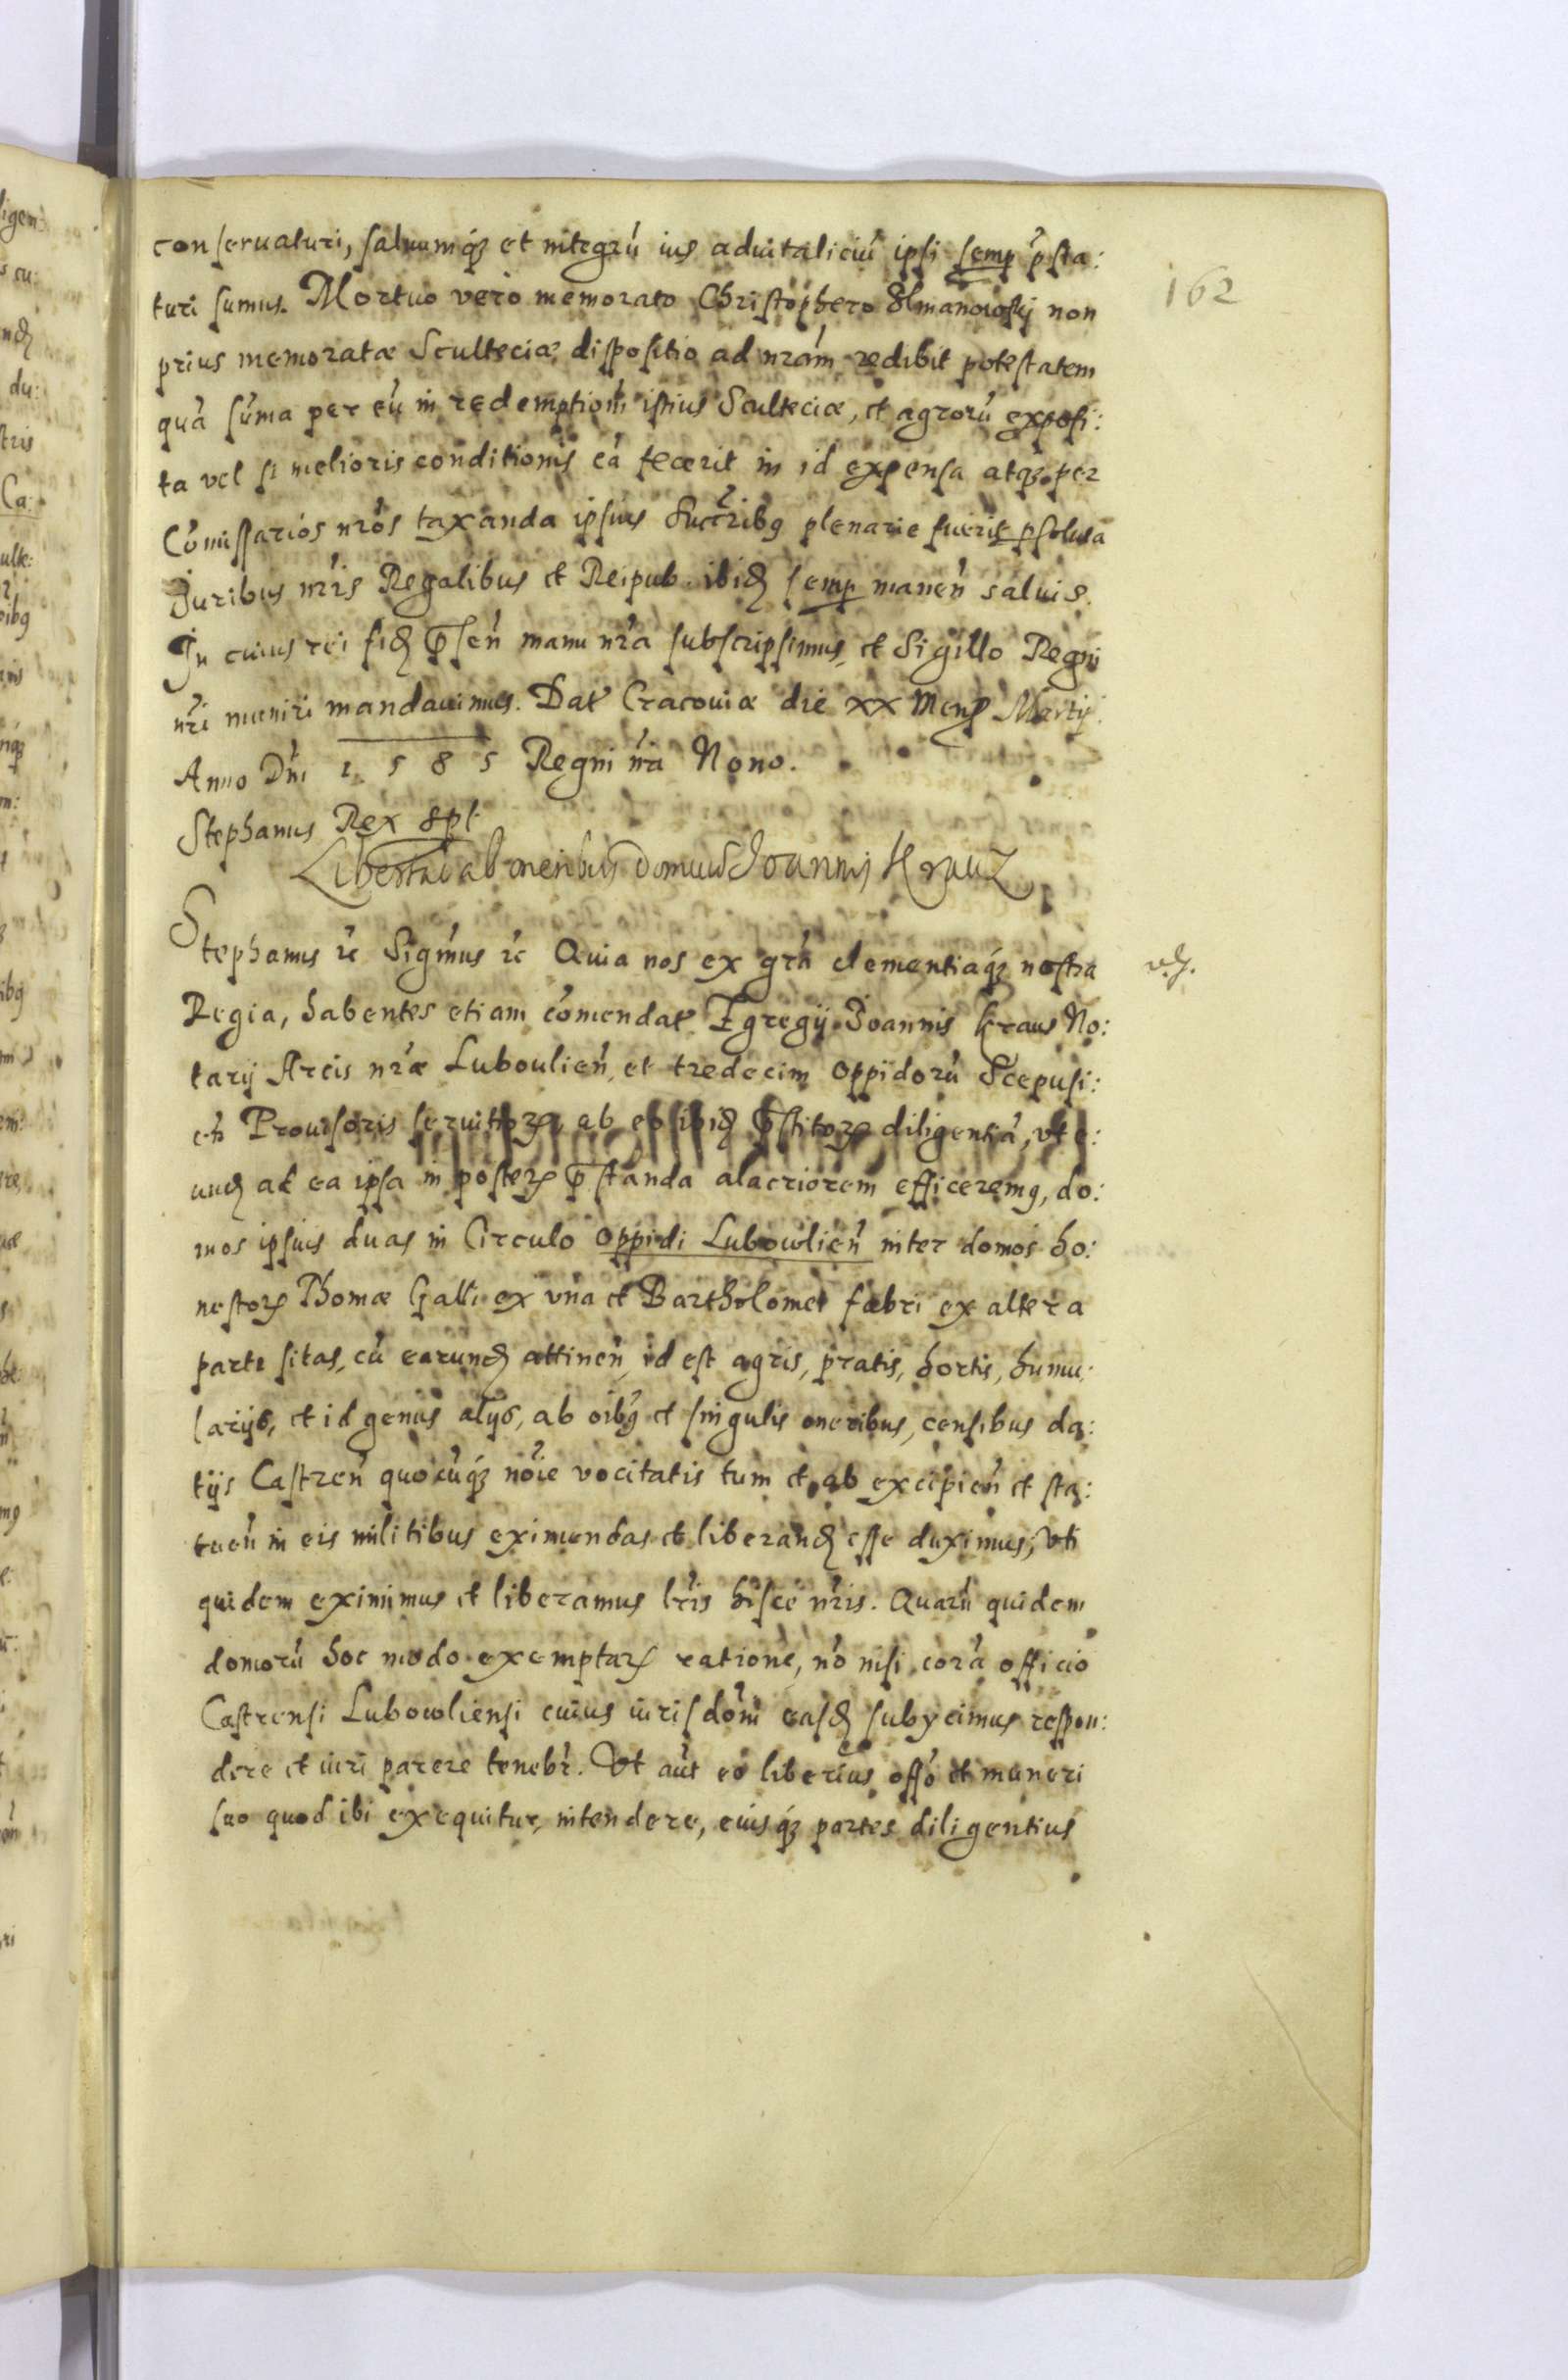 162
conseruaturi, saluumq3 et integrú ius aduitaliciú ipsi semp p̃sta:
turi sumus. Mortuo vero memorato Christophero Olmanowskj non
prius memoratæ Sculteciæ dispositio ad nrám redibit potestatem
quá súma per eú in redemptioné istius Scultéciæ, et agrorú exposi:
ta vel si melioris conditionis eá fecerit in id expensa atq3 per
Cómissarios nrós taxanda ipsius Succribg plenarie fuerit psoluta
Juribus nris Regalibus et Reipub. ibid semp manén saluis.
In cuius rei fid p̃sén manu nrá subscripsimus, et Sigillo Regni
nri muniri mandauimus. Dat Cracouiæ die xx mens Martij.
Anno Dni 1585 Regni nri Nono.
Stephanus Rex spt
Libertas ab oneribus domus Joannis Krauz
Stephanus rc Sigmus rc Quia nos ex grá clementiaq3 nostra
Regia, habentes etiam cómendat Egregij Joannis Kraus No:
tarij Arcis nræ Luboulién, et tredecim oppidorú Scepusi:
én Prouisoris seruitiorz ab eo ibid p̃stitorz diligentiá, vt e:
und ad ea ipsa in posterz p̃standa alacriorem efficeremg, do:
mos ipsius duas in Circulo oppidi Lubowlién inter domos ho:
nestorz Thomæ Galli ex vna et Bartholomei fabri ex altera
parte sitas, cú earund attinén, id est agris, pratis, hortis, humu:
larijs, et id genus alijs, ab oibg et singulis oneribus, censibus da:
tijs Castrén quocúq3 noie vocitatis tum et ab excipién et sta:
tuén in eis militibus eximendas et liberand esse duximus; vti
quidem eximimus et liberamus lris hisce nris. Quarú quidem
domorú hoc modo exemptarz ratione, nó nisi corá officio
Castrensi Lubowliensi cuius iurisdóni easd subycimus respon:
dere et iuri parere tenebr. Vt aút eo liberius offó et muneri
suo quod ibi exequitur, intendere, eiusq3 partes diligentius